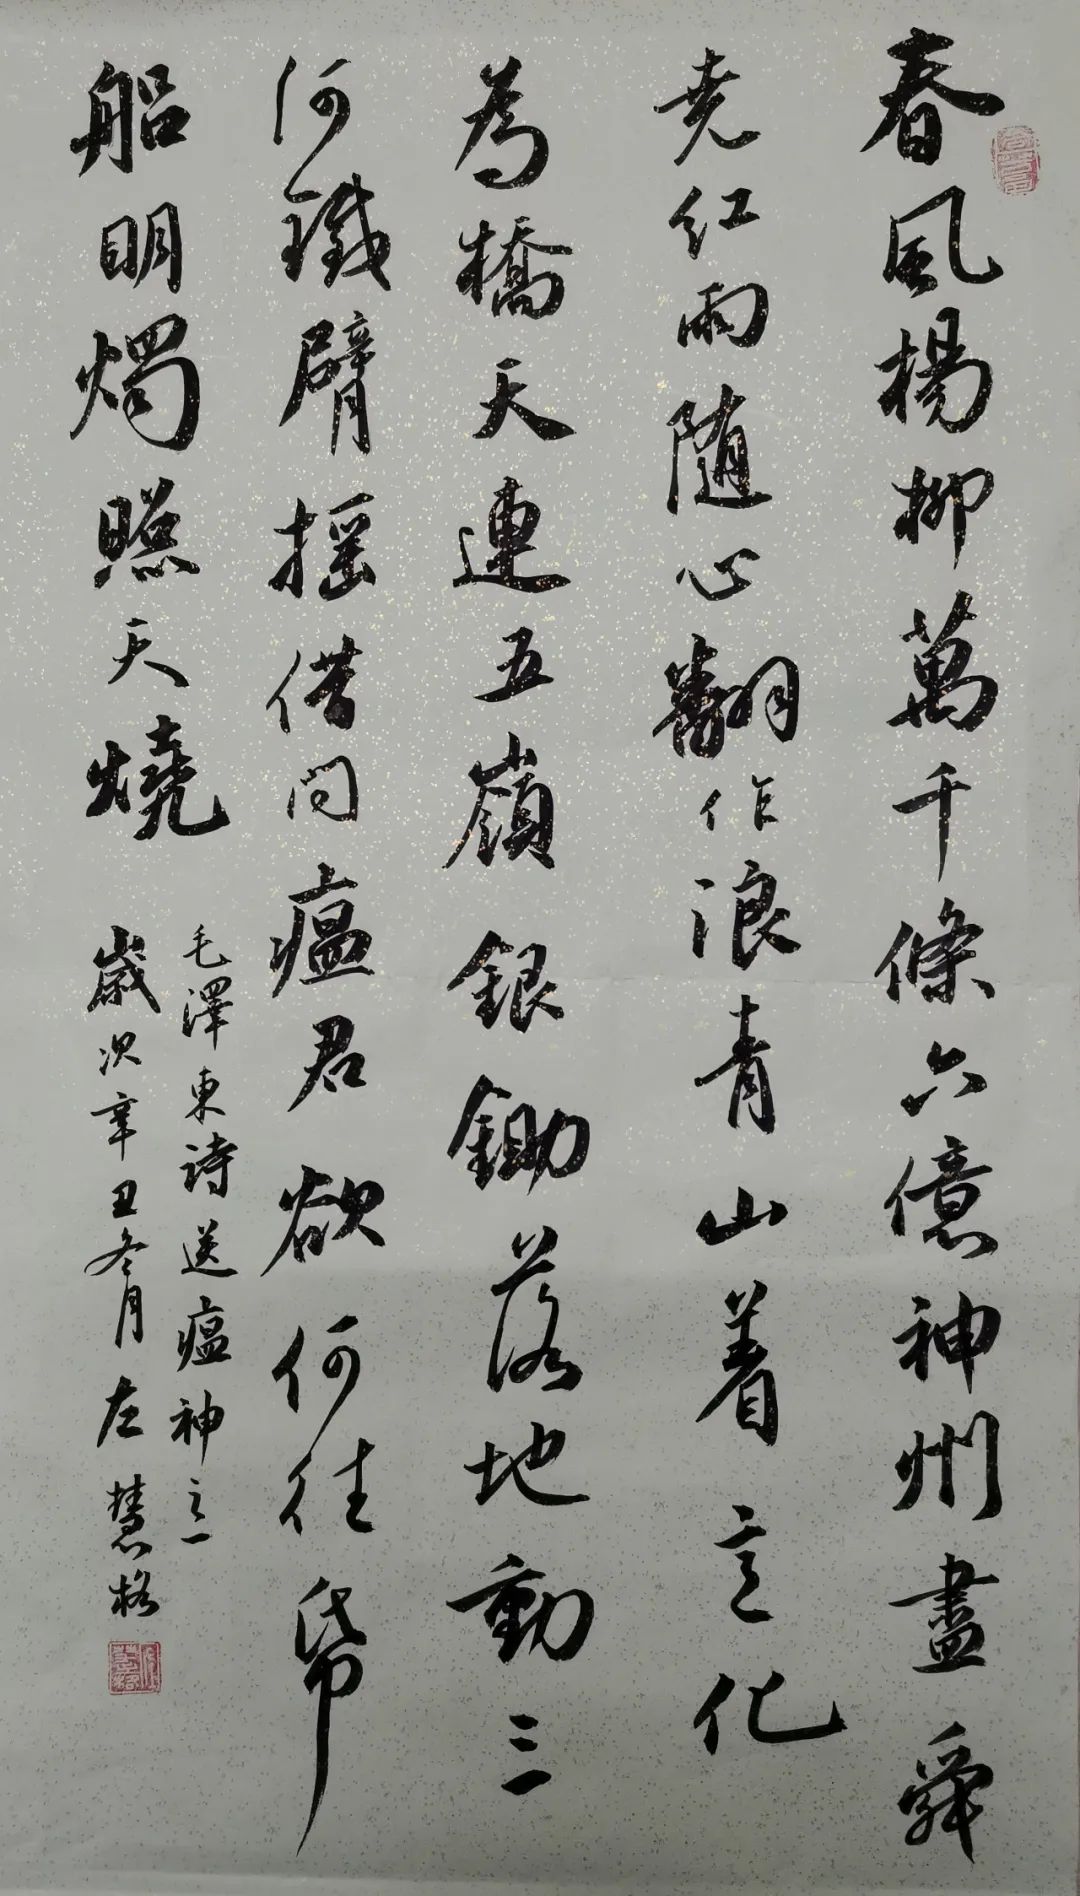 春風楊柳萬千條六億神州盡舜
尧紅雨随心翻作浪青山着意化
為橋天連五嶺銀鋤落地動三
河鐵臂摇借問瘟君欲何往帋
船明燭照天燒
毛澤東詩送瘟神之一
歲次辛丑冬月左慧格